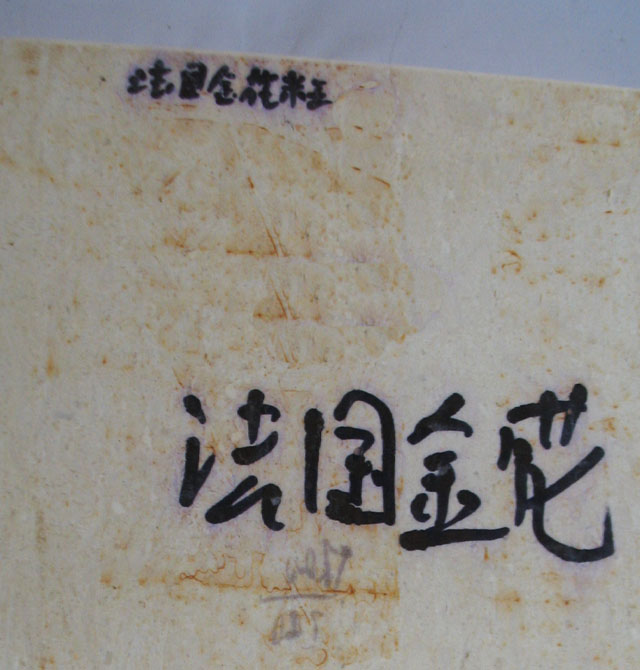 法国金花米王
法国金花